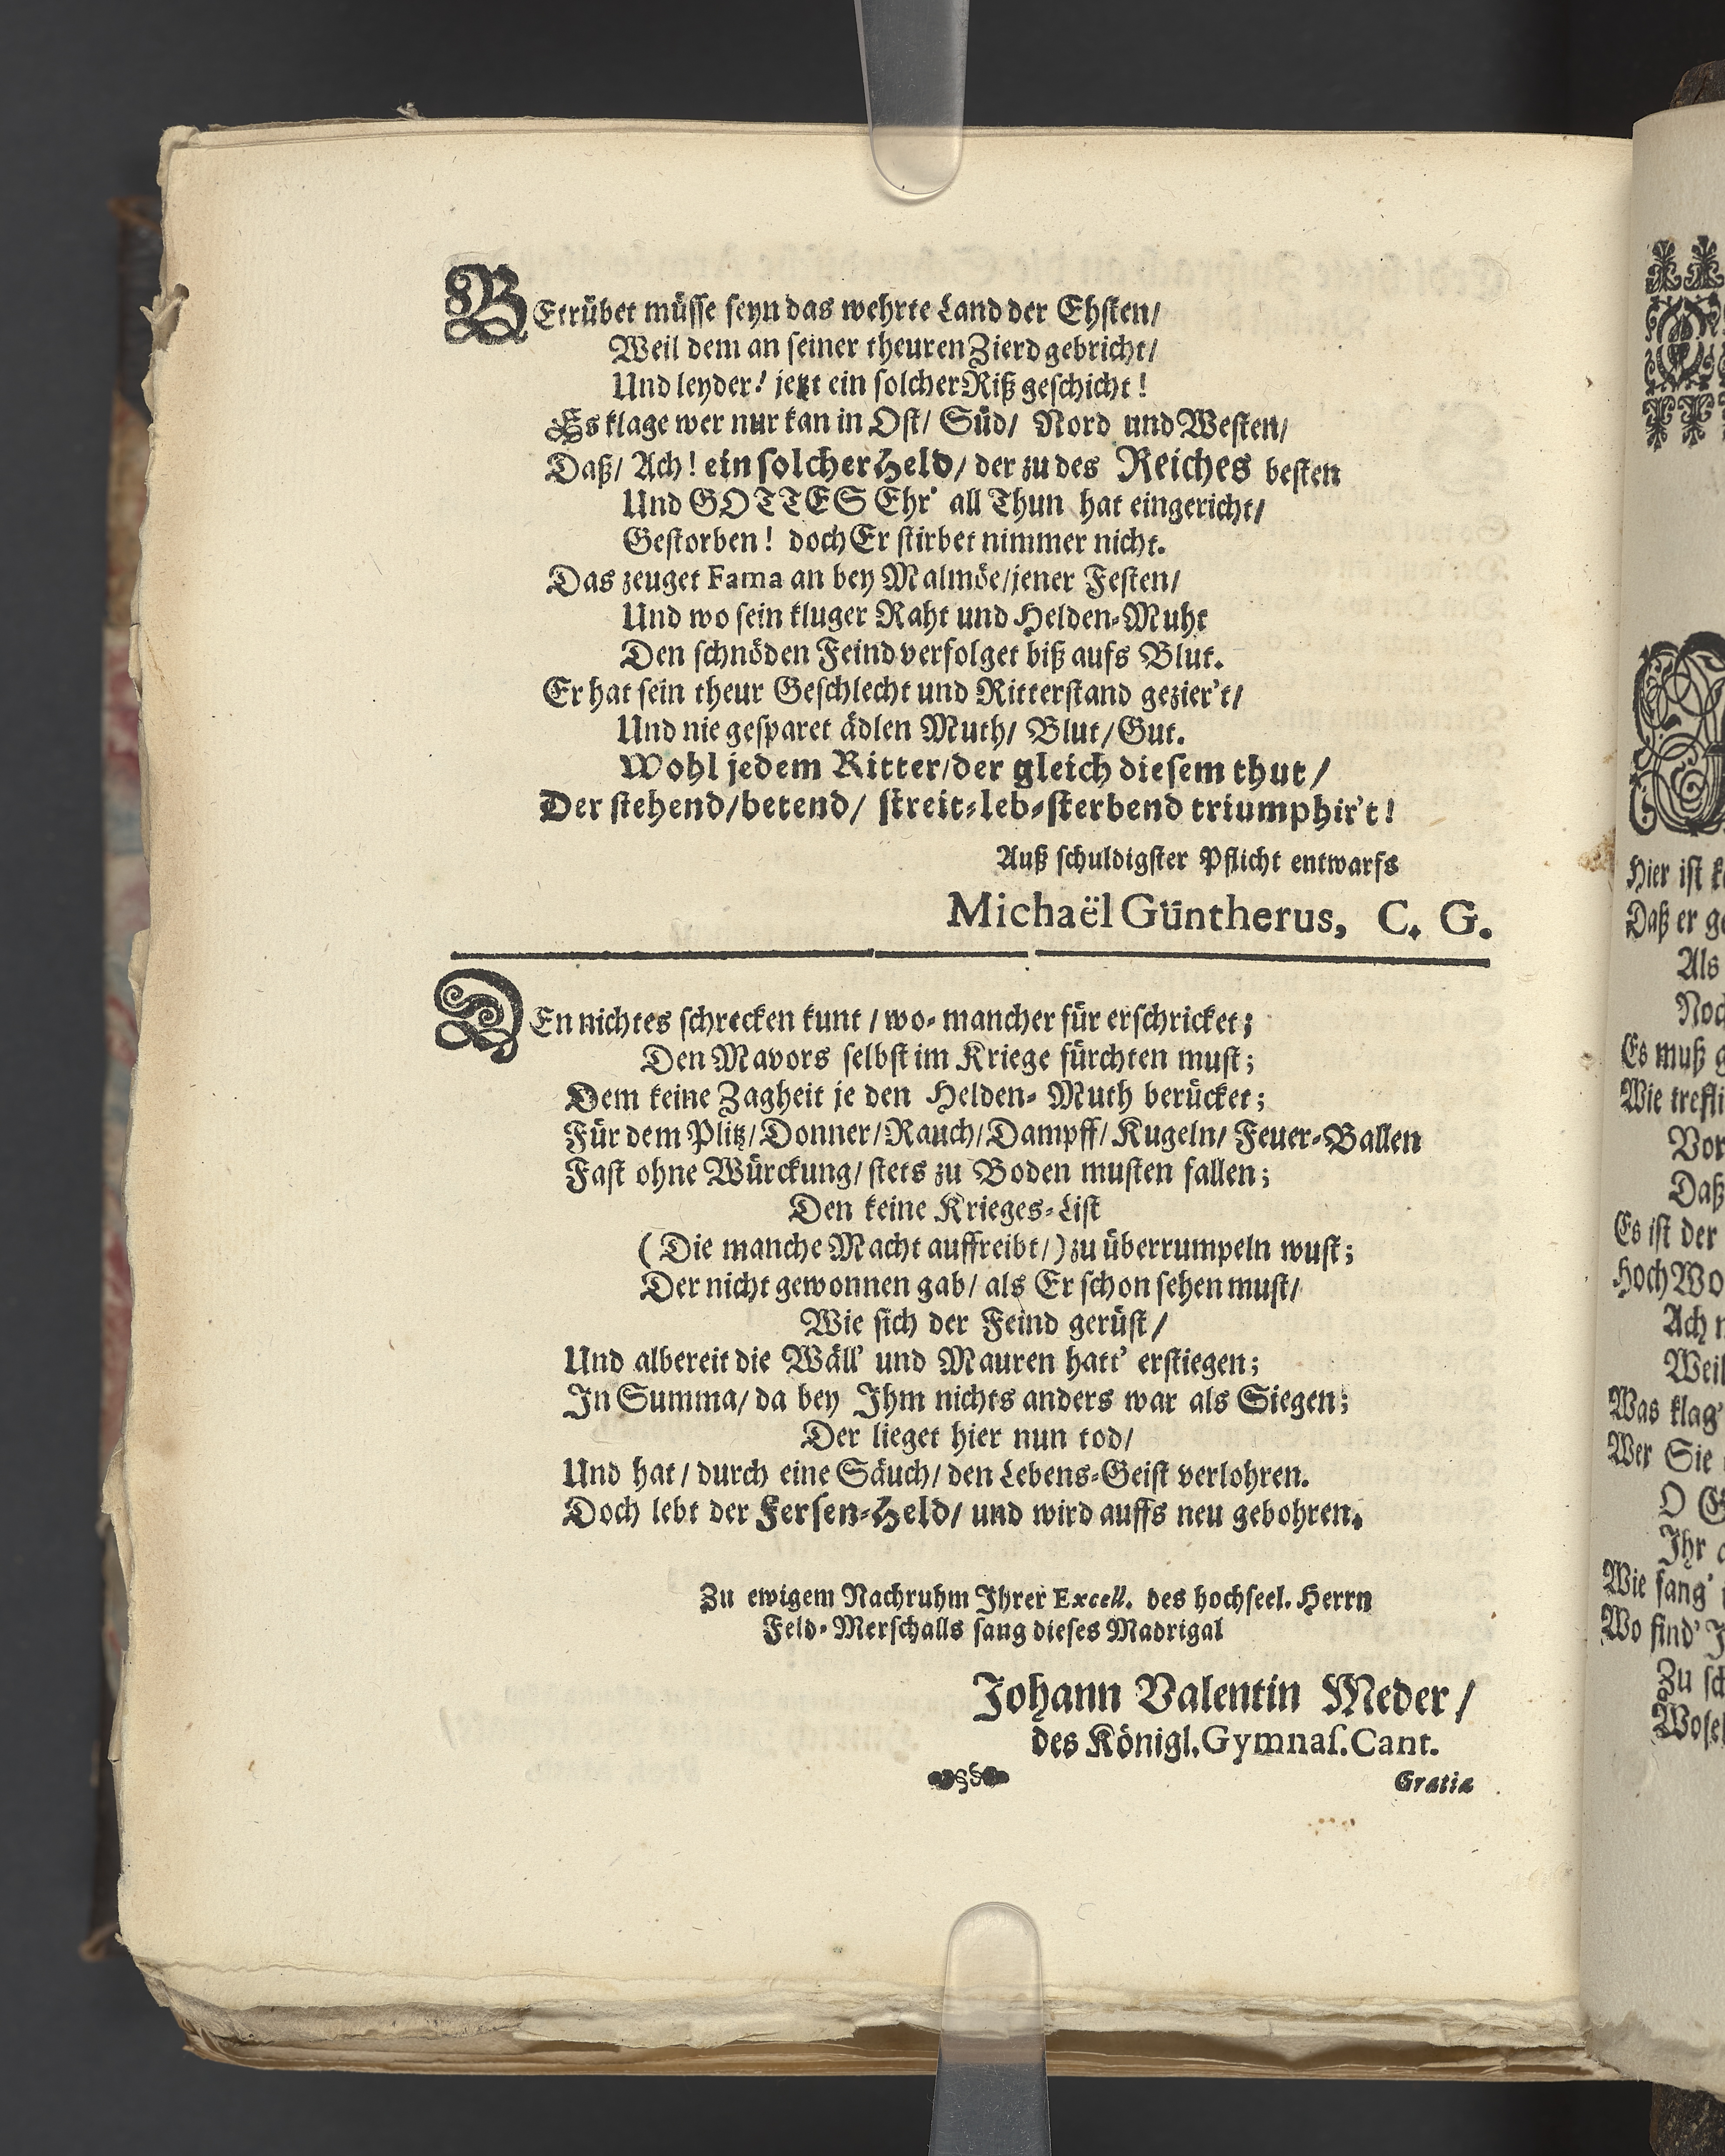 BEtrübet müsse seyn das wehrte Land der Ehsten/
Weil dem an seiner theuren Zierd gebricht/
Und leyder! jetzt ein solcher Riß geschicht!
Es klage wer nur kan in Ost/ Süd/ Nord und Westen/
Daß/ Ach! ein solcher Held/ der zu des Reiches besten
Und GOTTES Ehr' all Thun hat eingericht/
Gestorben! doch Er stirbet nimmer nicht.
Das zeuget Fama an bey Malmöe/jener Festen/
Und wo sein kluger Raht und Helden-Muht
Den schnöden Feind verfolget biß aufs Blut.
Er hat sein theur Geschlecht und Ritterstand gezier't/
Und nie gesparet ädlen Muth/ Blut/Gut.
Wohl jedem Ritter/der gleich diesem thut/
Der stehend/betend/ streit-leb-sterbend triumphir't!
Auß schuldigster Pflicht entwarfs
Michaël Güntherus, C. G.
DEn nichtes schrecken kunt / wo-mancher für erschricket;
Den Mavors selbst im Kriege fürchten must;
Dem keine Zagheit je den Helden-Muth berücket;
Für dem Plitz/Donner/Rauch/Dampff/Kugeln/ Feuer-Ballen
Fast ohne Würckung/ stets zu Boden musten fallen;
Den keine Krieges-List
(Die manche Macht auffreibt/) zu überrumpeln wust;
Der nicht gewonnen gab/ als Er schon sehen must/
Wie sich der Feind gerüst/
Und albereit die Wäll' und Mauren hatt' erstiegen;
In Summa/ da bey Ihm nichts anders war als Siegen;
Der lieget hier nun tod/
Und hat/ durch eine Säuch/ den Lebens-Geist verlohren.
Doch lebt der Fersen-Held/ und wird auffs neu gebohren.
Zu ewigem Nachruhm Ihrer Excell. des hochseel. Herrn
Feld-Merschalls sang dieses Madrigal
Johann Valentin Meder/
des Königl. Gymnas. Cant.
Gratiæ
Hier ist
Daß er
Als
Es muß
Wie
Vor
Daß
Es ist der
Ach
Weil
Was klag'
Wer Sie
O
Ihr
Wie fang'
Wo find'
Zu